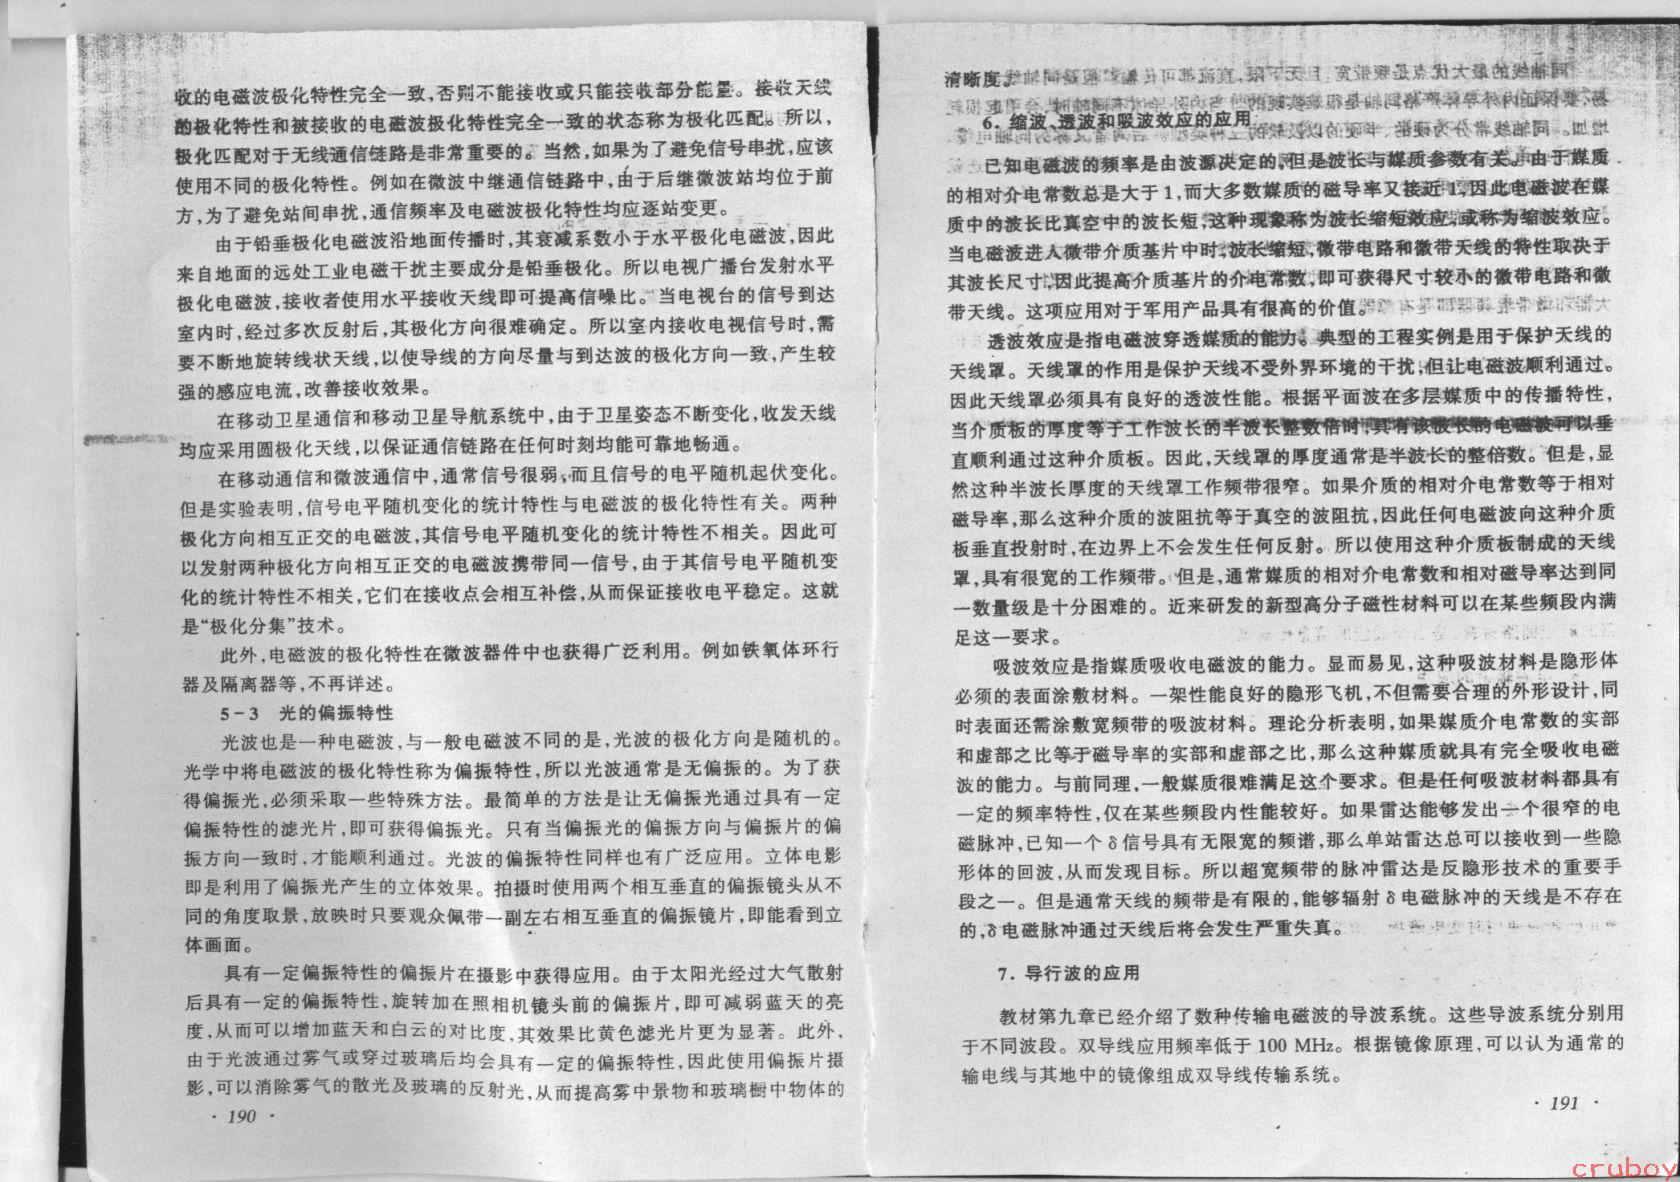 收的电磁波极化特性完全一致,否则不能接收或只能接收部分能量。接收天线
的极化特性和被接收的电磁波极化特性完全一致的状态称为极化匹配。所以,
极化匹配对于无线通信链路是非常重要的。当然,如果为了避免信号串扰,应该
使用不同的极化特性。例如在微波中继通信链路中,由于后继微波站均位于前
方,为了避免站间串扰,通信频率及电磁波极化特性均应逐站变更。
由于铅垂极化电磁波沿地面传播时,其衰减系数小于水平极化电磁波,因此
来自地面的远处工业电磁干扰主要成分是铅垂极化。所以电视广播台发射水平
极化电磁波,接收者使用水平接收天线即可提高信噪比。当电视台的信号到达
室内时,经过多次反射后,其极化方向很难确定。所以室内接收电视信号时,需
要不断地旋转线状天线,以使导线的方向尽量与到达波的极化方向一致,产生较
强的感应电流,改善接收效果。
在移动卫星通信和移动卫星导航系统中,由于卫星姿态不断变化,收发天线
均应采用圆极化天线,以保证通信链路在任何时刻均能可靠地畅通。
在移动通信和微波通信中,通常信号很弱,而且信号的电平随机起伏变化。
但是实验表明,信号电平随机变化的统计特性与电磁波的极化特性有关。两种
极化方向相互正交的电磁波,其信号电平随机变化的统计特性不相关。因此可
以发射两种极化方向相互正交的电磁波携带同一信号,由于其信号电平随机变
化的统计特性不相关,它们在接收点会相互补偿,从而保证接收电平稳定。这就
是“极化分集”技术。
此外,电磁波的极化特性在微波器件中也获得广泛利用。例如铁氧体环行
器及隔离器等,不再详述。
5-3 光的偏振特性
光波也是一种电磁波,与一般电磁波不同的是,光波的极化方向是随机的。
光学中将电磁波的极化特性称为偏振特性,所以光波通常是无偏振的。为了获
得偏振光,必须采取一些特殊方法。最简单的方法是让无偏振光通过具有一定
偏振特性的滤光片,即可获得偏振光。只有当偏振光的偏振方向与偏振片的偏
振方向一致时,才能顺利通过。光波的偏振特性同样也有广泛应用。立体电影
即是利用了偏振光产生的立体效果。拍摄时使用两个相互垂直的偏振镜头从不
同的角度取景,放映时只要观众佩带一副左右相互垂直的偏振镜片,即能看到立
体画面。
具有一定偏振特性的偏振片在摄影中获得应用。由于太阳光经过大气散射
后具有一定的偏振特性,旋转加在照相机镜头前的偏振片,即可减弱蓝天的亮
度,从而可以增加蓝天和白云的对比度,其效果比黄色滤光片更为显著。此外,
由于光波通过雾气或穿过玻璃后均会具有一定的偏振特性,因此使用偏振片摄
影,可以消除雾气的散光及玻璃的反射光,从而提高雾中景物和玻璃橱中物体的
· 190 ·
清晰度。
6. 缩波、透波和吸波效应的应用
已知电磁波的频率是由波源决定的,但是波长与媒质参数有关。由于媒质
的相对介电常数总是大于1,而大多数媒质的磁导率又接近1,因此电磁波在媒
质中的波长比真空中的波长短,这种现象称为波长缩短效应,或称为缩波效应。
当电磁波进入微带介质基片中时,波长缩短,微带电路和微带天线的特性取决于
其波长尺寸,因此提高介质基片的介电常数,即可获得尺寸较小的微带电路和微
带天线。这项应用对于军用产品具有很高的价值。
透波效应是指电磁波穿透媒质的能力。典型的工程实例是用于保护天线的
天线罩。天线罩的作用是保护天线不受外界环境的干扰,但让电磁波顺利通过。
因此天线罩必须具有良好的透波性能。根据平面波在多层媒质中的传播特性,
当介质板的厚度等于工作波长的半波长整数倍时,具有该波长的电磁波可以垂
直顺利通过这种介质板。因此,天线罩的厚度通常是半波长的整倍数。但是,显
然这种半波长厚度的天线罩工作频带很窄。如果介质的相对介电常数等于相对
磁导率,那么这种介质的波阻抗等于真空的波阻抗,因此任何电磁波向这种介质
板垂直投射时,在边界上不会发生任何反射。所以使用这种介质板制成的天线
罩,具有很宽的工作频带。但是,通常媒质的相对介电常数和相对磁导率达到同
一数量级是十分困难的。近来研发的新型高分子磁性材料可以在某些频段内满
足这一要求。
吸波效应是指媒质吸收电磁波的能力。显而易见,这种吸波材料是隐形体
必须的表面涂敷材料。一架性能良好的隐形飞机,不但需要合理的外形设计,同
时表面还需涂敷宽频带的吸波材料。理论分析表明,如果媒质介电常数的实部
和虚部之比等于磁导率的实部和虚部之比,那么这种媒质就具有完全吸收电磁
波的能力。与前同理,一般媒质很难满足这个要求。但是任何吸波材料都具有
一定的频率特性,仅在某些频段内性能较好。如果雷达能够发出一个很窄的电
磁脉冲,已知一个 δ 信号具有无限宽的频谱,那么单站雷达总可以接收到一些隐
形体的回波,从而发现目标。所以超宽频带的脉冲雷达是反隐形技术的重要手
段之一。但是通常天线的频带是有限的,能够辐射 δ 电磁脉冲的天线是不存在
的,δ 电磁脉冲通过天线后将会发生严重失真。
7. 导行波的应用
教材第九章已经介绍了数种传输电磁波的导波系统。这些导波系统分别用
于不同波段。双导线应用频率低于 100 MHz。根据镜像原理,可以认为通常的
输电线与其地中的镜像组成双导线传输系统。
· 191 ·
cruboy